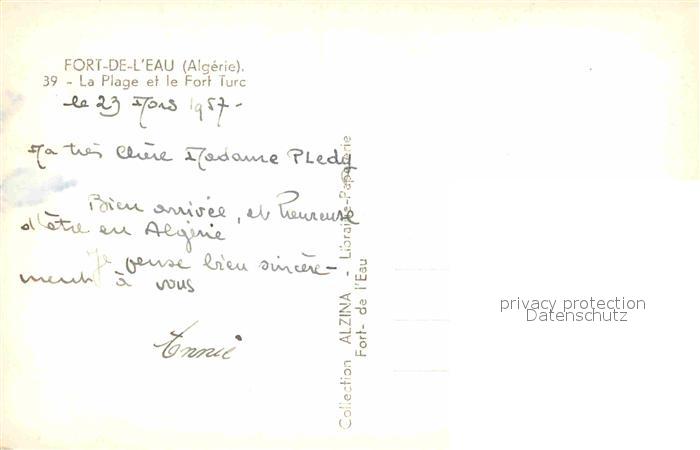 FORT-DE-L'EAU (Algérie).
39 - La Plage et le Fort Turc
le 23 Mars 1957-
Ma très chère Madame Pledy
Bien arrivée, et heureuse
d'être en Algérie
Je pense bien sincère-
ment à vous
Annie
Collection ALZINA - Librairie-Papeterie
Fort- de l'Eau
privacy protection
Datenschutz